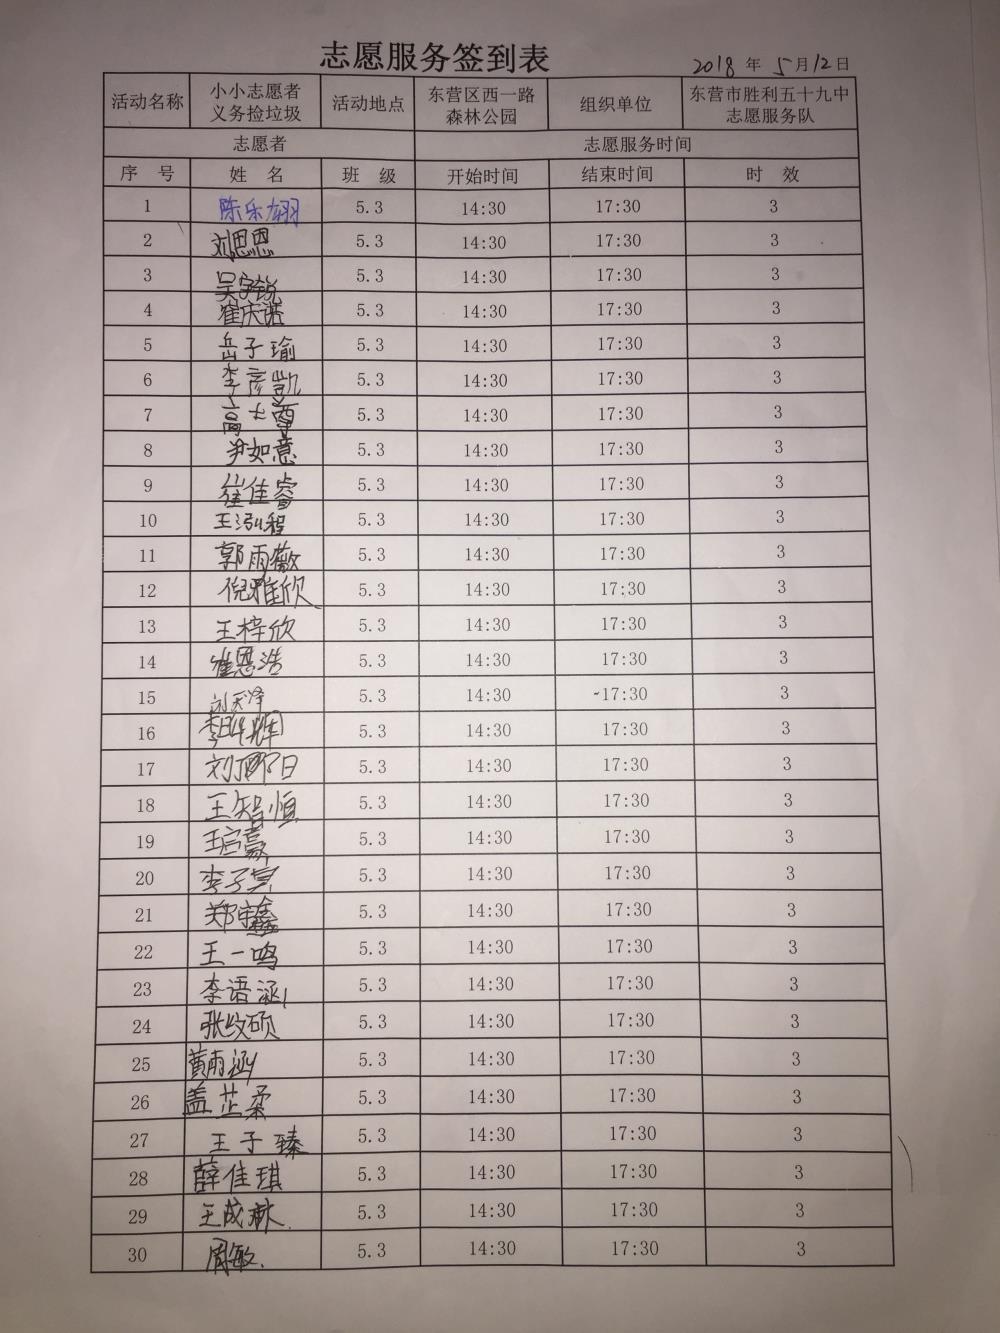 志愿服务签到表
2018 年 5 月 12 日
活动名称 小小志愿者 义务捡垃圾 活动地点 东营区西一路 森林公园 组织单位 东营市胜利五十九中 志愿服务队
志愿者 志愿服务时间
序 号 姓 名 班 级 开始时间 结束时间 时 效
1 陈乐翊 5.3 14:30 17:30 3
2 刘思恩 5.3 14:30 17:30 3
3 吴宇锐 5.3 14:30 17:30 3
4 崔庆诺 5.3 14:30 17:30 3
5 岳子瑜 5.3 14:30 17:30 3
6 李彦凯 5.3 14:30 17:30 3
7 高士尊 5.3 14:30 17:30 3
8 尹如意 5.3 14:30 17:30 3
9 崔佳睿 5.3 14:30 17:30 3
10 王泓程 5.3 14:30 17:30 3
11 郭雨薇 5.3 14:30 17:30 3
12 倪雅欣 5.3 14:30 17:30 3
13 王梓欣 5.3 14:30 17:30 3
14 崔恩浩 5.3 14:30 17:30 3
15 刘天泽 5.3 14:30 17:30 3
16 5.3 14:30 17:30 3
17 5.3 14:30 17:30 3
18 王智恒 5.3 14:30 17:30 3
19 王启豪 5.3 14:30 17:30 3
20 5.3 14:30 17:30 3
21 郑宇鑫 5.3 14:30 17:30 3
22 王一鸣 5.3 14:30 17:30 3
23 李语涵 5.3 14:30 17:30 3
24 张纹硕 5.3 14:30 17:30 3
25 黄雨涵 5.3 14:30 17:30 3
26 盖芷柔 5.3 14:30 17:30 3
27 王子臻 5.3 14:30 17:30 3
28 薛佳琪 5.3 14:30 17:30 3
29 王成林 5.3 14:30 17:30 3
30 周敏 5.3 14:30 17:30 3